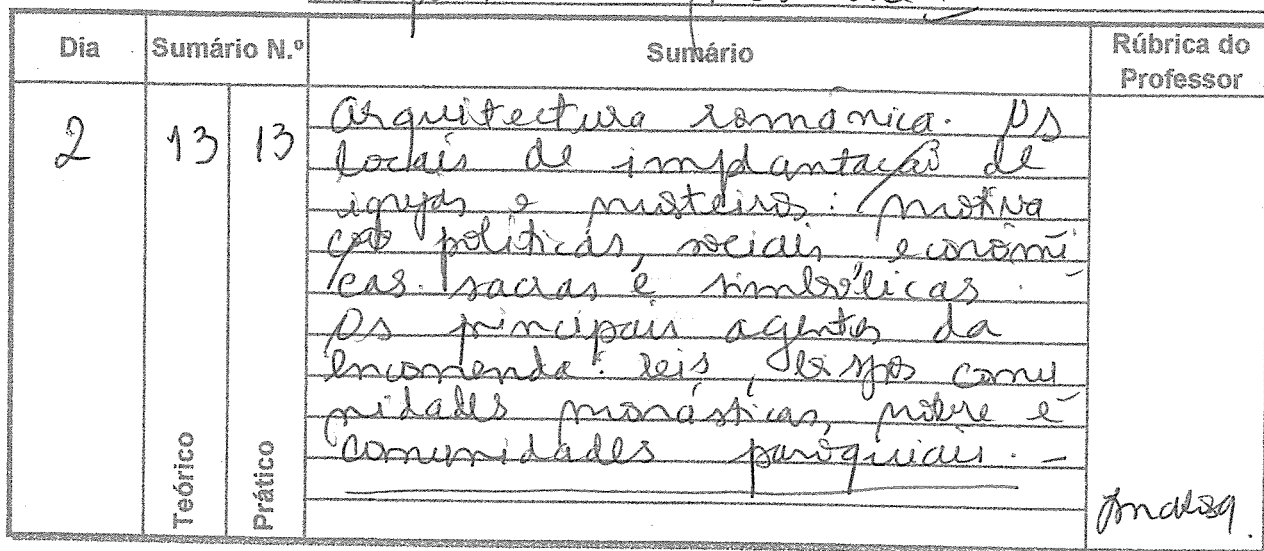 Dia Sumário N.º Sumário Rúbrica do Professor
2 13 13
Teórico Prático
Arquitectura românica. Os
locais de implantação de
igrejas e mosteiros: motiva
ções políticas, sociais, económi
cas. sacras e simbólicas.
Os principais agentes da
encomenda: reis, bispos comu
nidades monásticas, nobre e
comunidades paroquiais. -